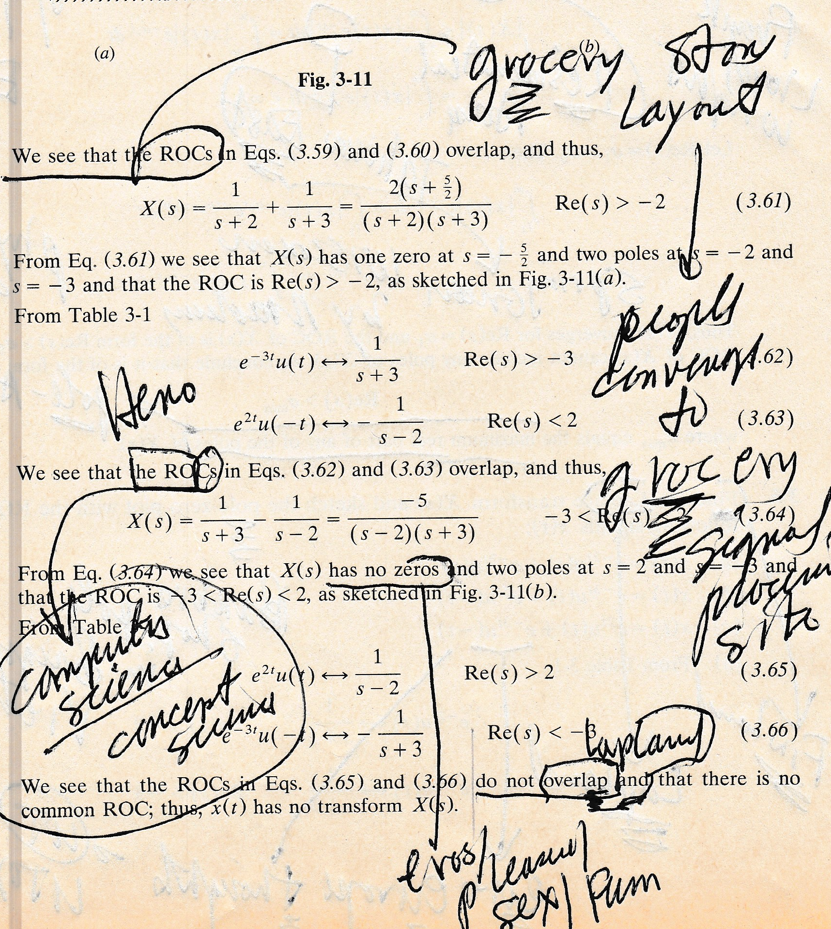 (a)
(b)
grocery store
layout
Fig. 3-11
We see that the ROCs in Eqs. (3.59) and (3.60) overlap, and thus,
X(s) = 1/(s + 2) + 1/(s + 3) = 2(s + 5/2)/((s + 2)(s + 3)) Re(s) > −2 (3.61)
From Eq. (3.61) we see that X(s) has one zero at s = − 5/2 and two poles at s = −2 and
s = −3 and that the ROC is Re(s) > −2, as sketched in Fig. 3-11(a).
From Table 3-1
people
converge
to
grocery
signal
processing
site
e^{−3t}u(t) ↔ 1/(s + 3) Re(s) > −3 .62)
e^{2t}u(−t) ↔ − 1/(s − 2) Re(s) < 2 (3.63)
We see that the ROCs in Eqs. (3.62) and (3.63) overlap, and thus,
X(s) = 1/(s + 3) − 1/(s − 2) = −5/((s − 2)(s + 3)) −3 < Re(s) < 2 (3.64)
From Eq. (3.64) we see that X(s) has no zeros and two poles at s = 2 and s = −3 and
that the ROC is −3 < Re(s) < 2, as sketched in Fig. 3-11(b).
From Table
computer
science
concept
science
e^{2t}u(t) ↔ 1/(s − 2) Re(s) > 2 (3.65)
e^{−3t}u(−t) ↔ − 1/(s + 3) Re(s) < −3 (3.66)
lapland
We see that the ROCs in Eqs. (3.65) and (3.66) do not overlap and that there is no
common ROC; thus, x(t) has no transform X(s).
eros/
pleasure/
sex/